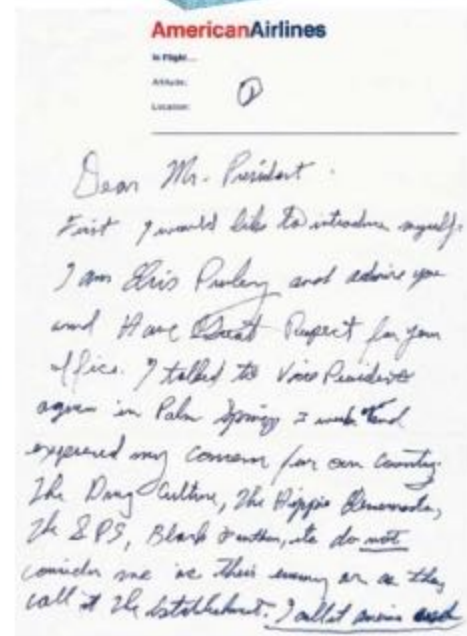 AmericanAirlines
In Flight...
Altitude;
Location;
1
Dear Mr. President.
First I would like to introduce myself.
I am Elvis Presley and admire you
and Have Great Respect for your
office. I talked to Vice President
agnew in Palm Springs 3 weeks and
expressed my concern for our Country.
The Drug Culture, The Hippie Elements,
The SDS, Black Panthers, etc do not
consider me as their enemy or as they
call it The Establishment. I call it america and